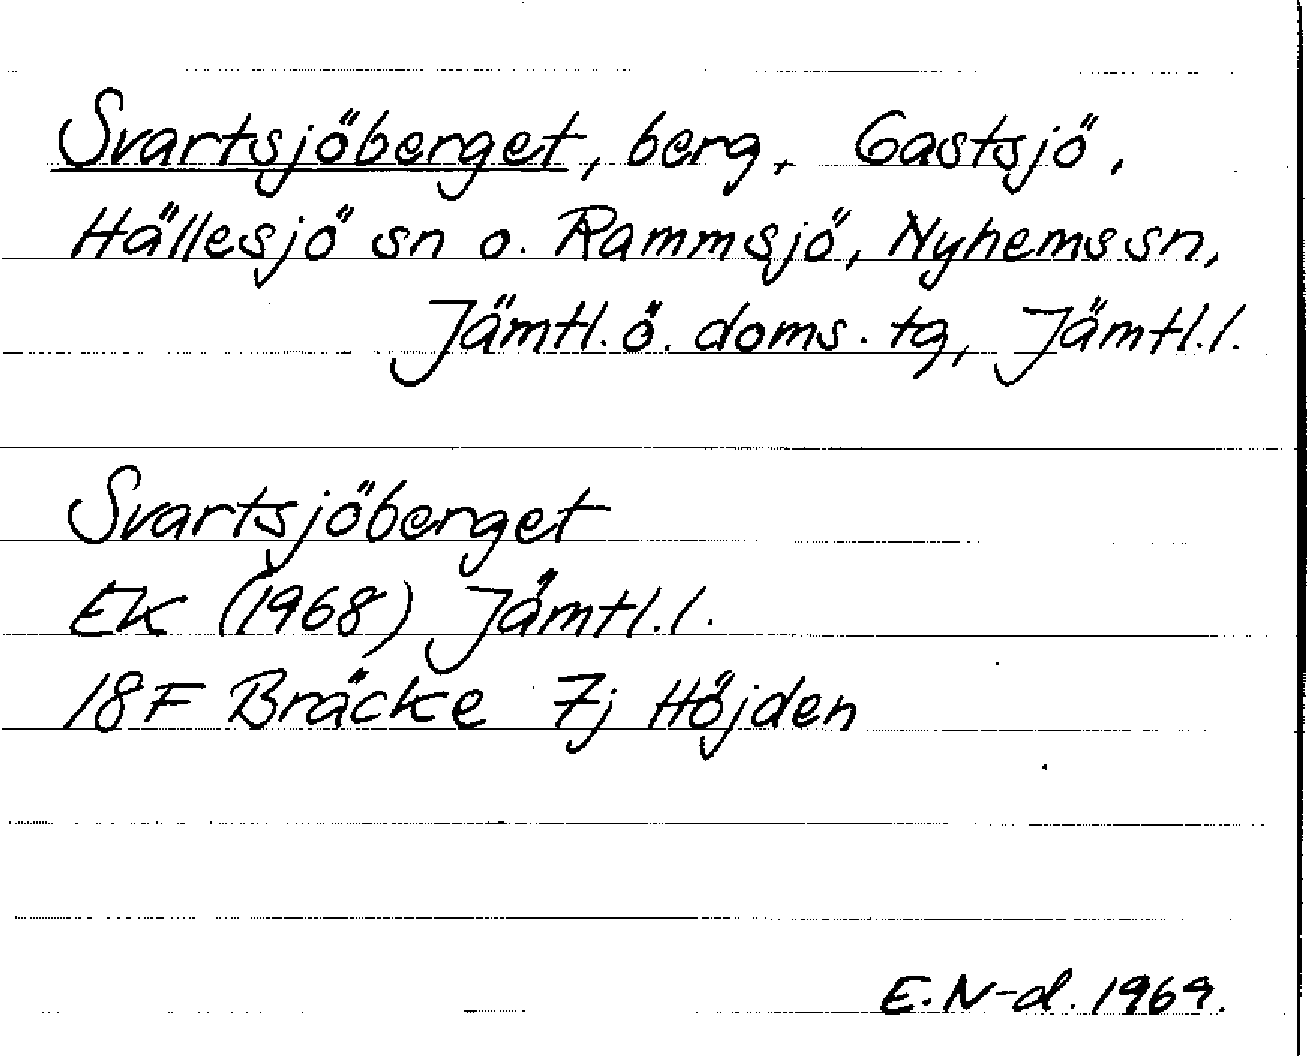 Svartsjöberget, berg, Gastsjö,
Hällesjö sn o. Rammsjö, Nyhems sn,
Jämtl. ö. doms. tg, Jämtl. l.
Svartsjöberget
EK (1968) Jämtl. l.
18F Bräcke 7j Höjden
E. N-d. 1969.